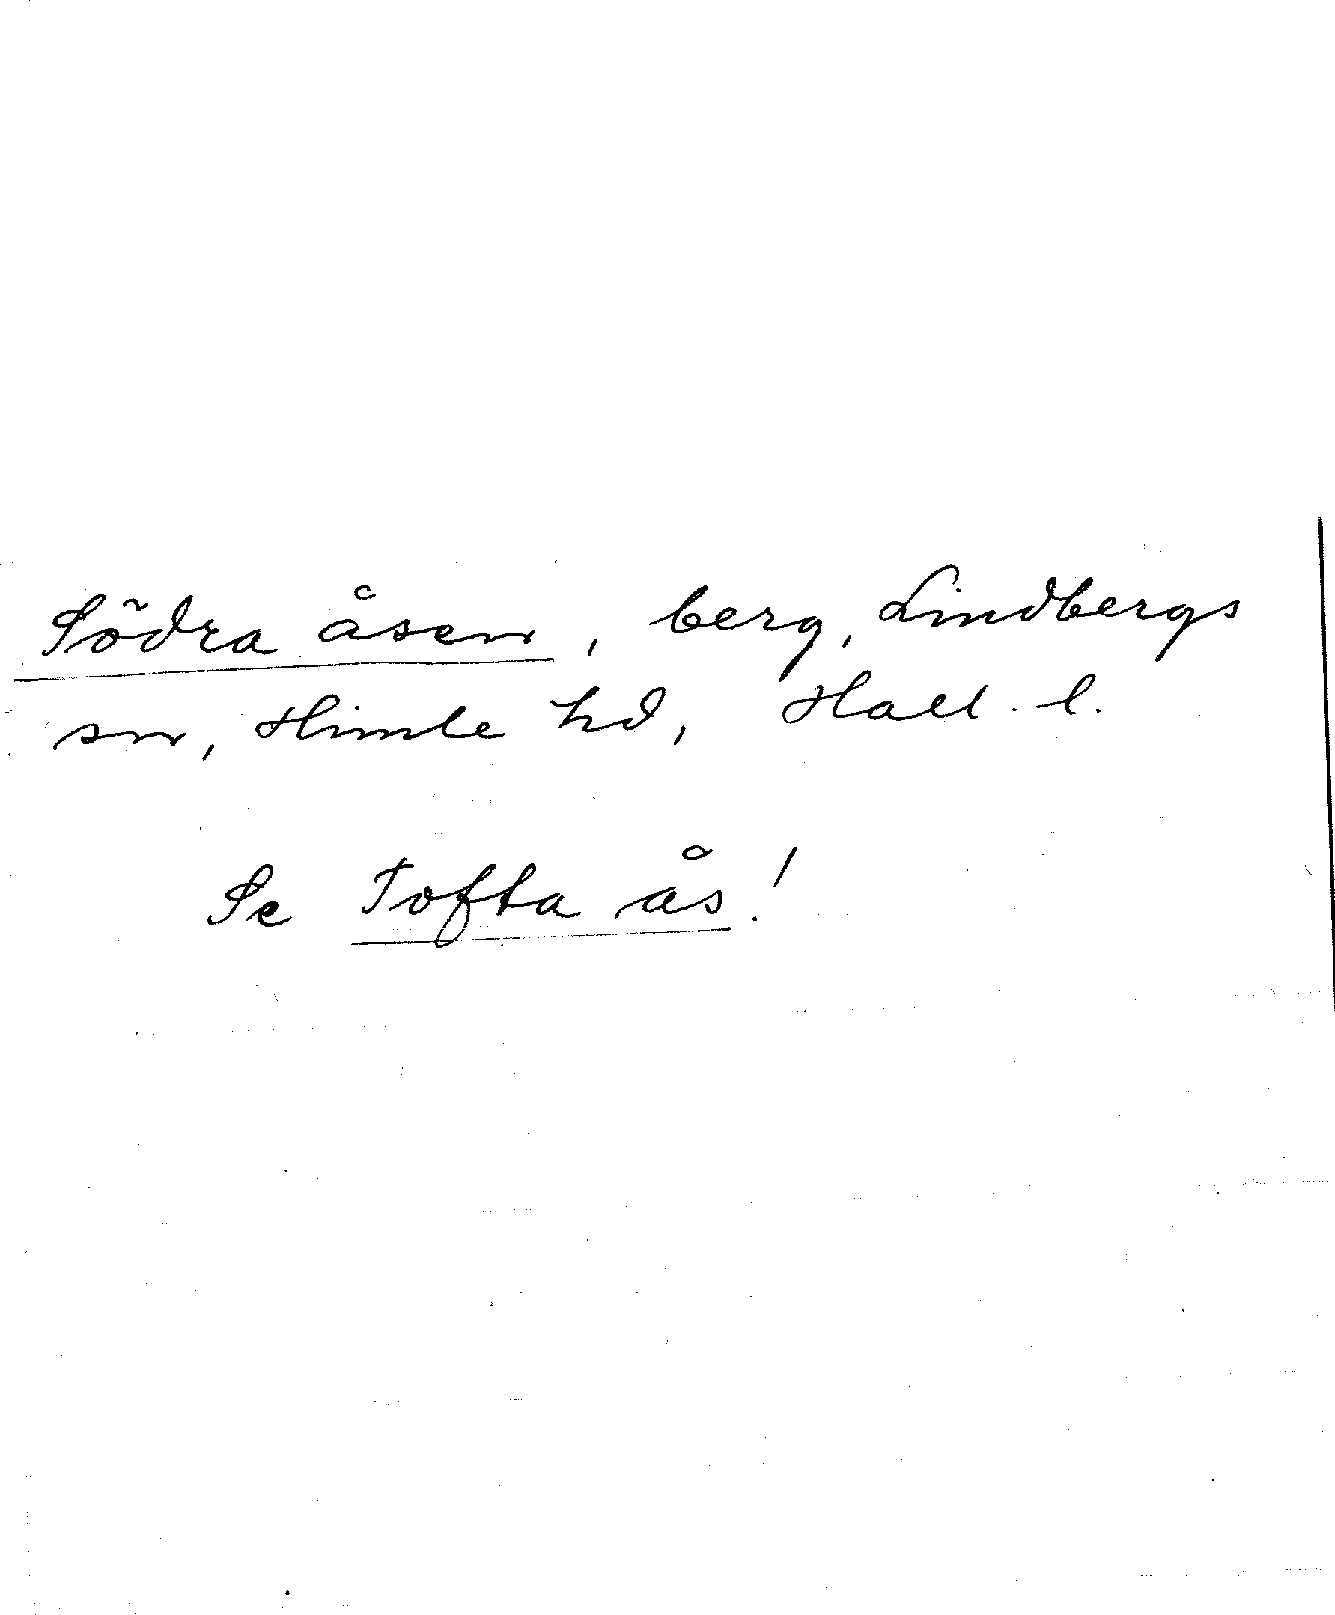 Södra åsen, berg, Lindbergs
sn, Himle hd, Hall. l.
Se Tofta ås!